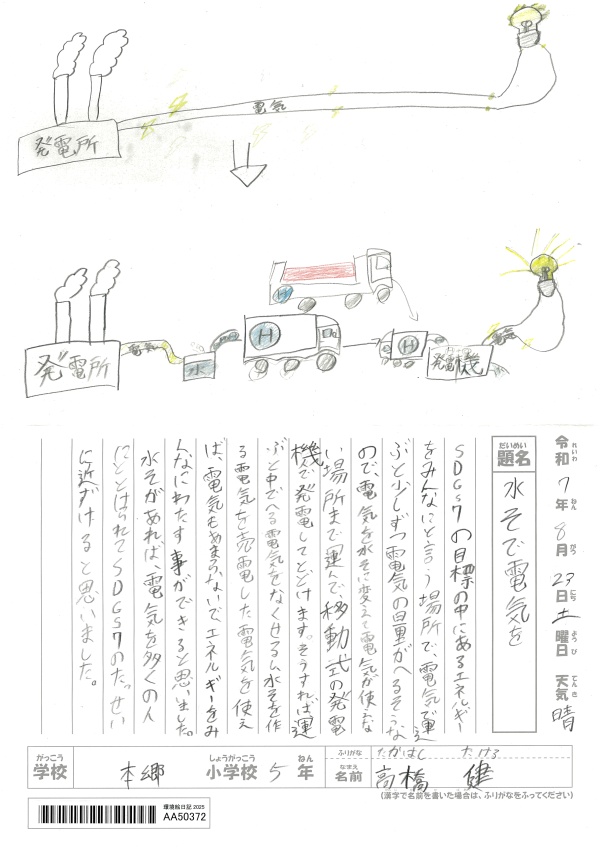 電気
発電所
H
電気
水
H
H
発電機
電気
発電所
令和7年8月23日土曜日 天気 晴
れいわ ねん がつ にち ようび てんき
だいめい
題名
水そで電気を
SDGs7の目標の中にあるエネルギー
をみんなにと言う場所で、電気で運
ぶと少しずつ電気の量がへるそうな
ので、電気を水そに変えて電気が使えな
い場所まで運んで、移動式の発電
機で発電してとどけます。そうすれば運
ぶと中でへる電気をなくせるし水そを作
る電気を売電した電気を使え
ば、電気もあまらないでエネルギーをみ
んなにわたす事ができると思いました。
水そがあれば、電気を多くの人
にとどけられてSDGs7のたっせい
に近ずけると思いました。
がっこう
学校
本郷
しょうがっこう
小学校
5
ねん
年
ふりがな
たかはし たける
なまえ
名前
高橋 健
(漢字で名前を書いた場合は、ふりがなをふってください)
環境絵日記 2025
AA50372